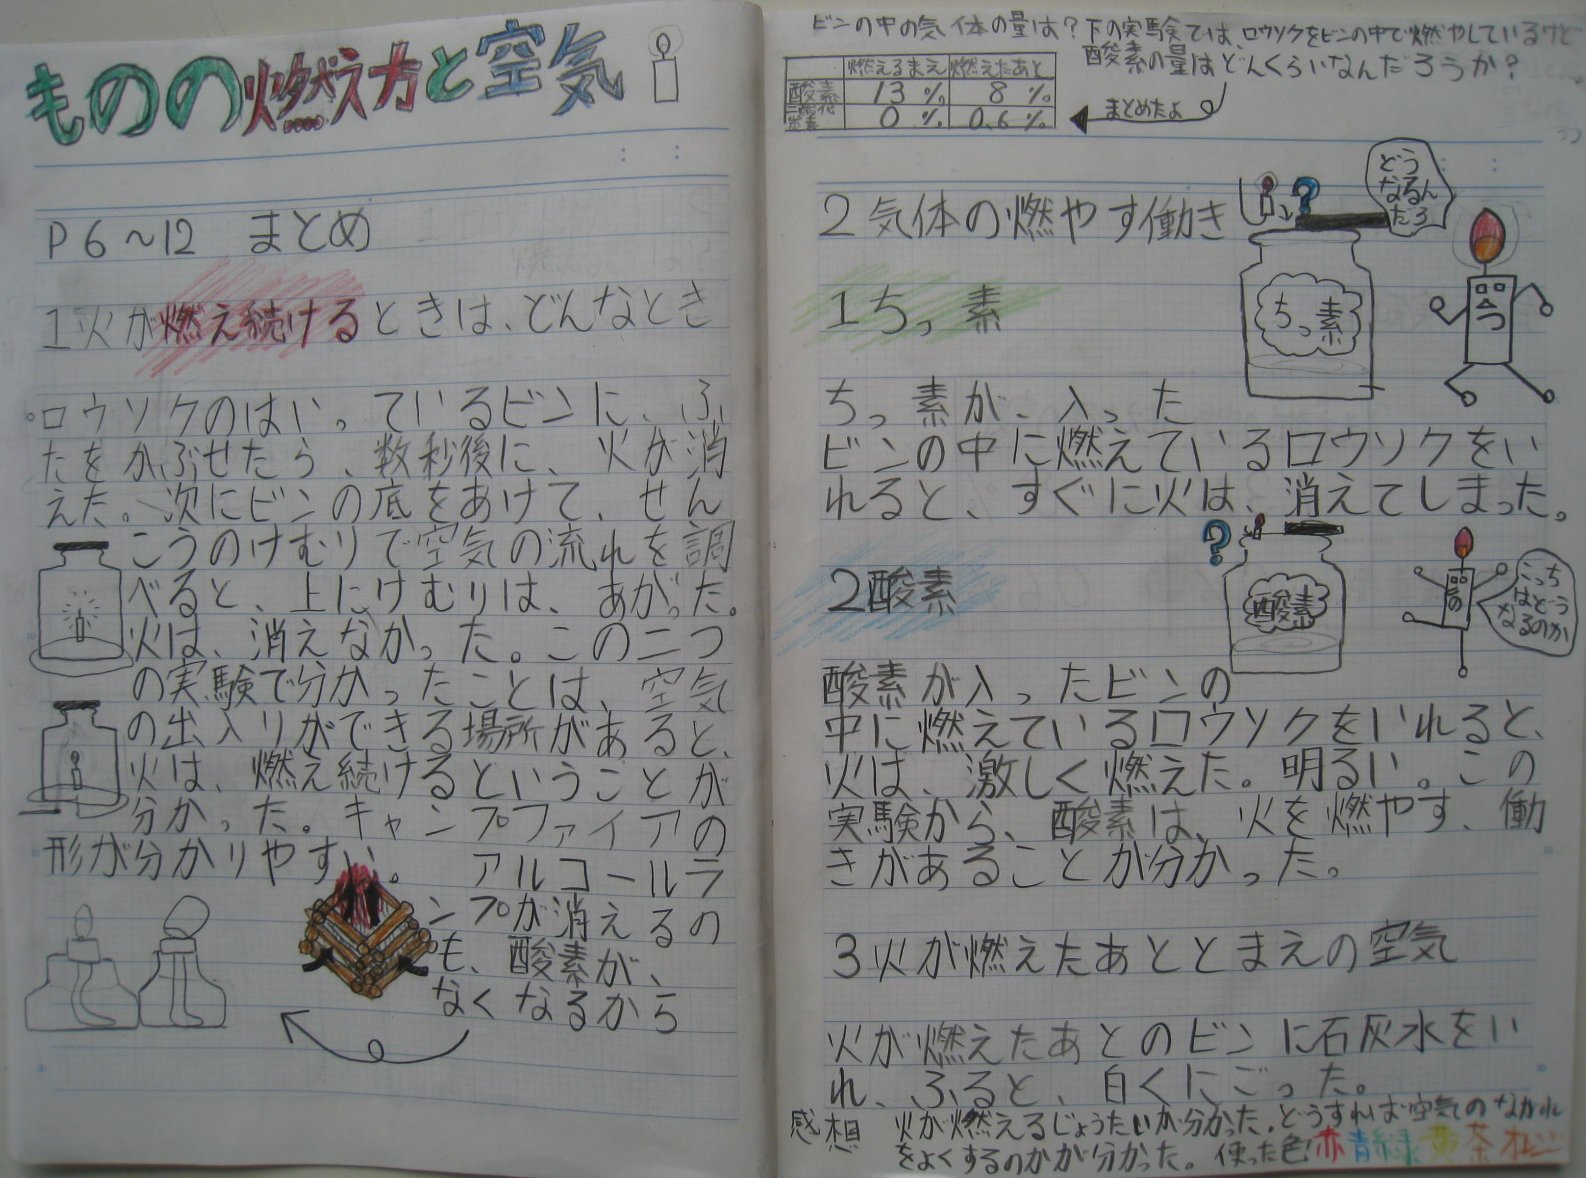 ものの燃え方と空気
P6～12 まとめ
1火が燃え続けるときは、どんなとき
ロウソクのはいっているビンに、ふ
たをかぶせたら、数秒後に、火が消
えた。次にビンの底をあけて、せん
こうのけむりで空気の流れを調
べると、上にけむりは、あがった。
火は、消えなかった。この二つ
の実験で分かったことは、空気
の出入りができる場所があると、
火は、燃え続けるということが
分かった。キャンプファイアの
形が分かりやすい。 アルコールラ
ンプが消えるの
も、酸素が、
なくなるから
ビンの中の気体の量は?下の実験では、ロウソクをビンの中で燃やしているけど
酸素の量はどんくらいなんだろうか?
燃えるまえ 燃えたあと
酸素 13% 8%
二酸化炭素 0% 0.6%
まとめたよ
2気体の燃やす働き
?
どう
なるん
だろ
1ちっ素
ちっ素
ちっ素が、入った
ビンの中に燃えているロウソクをい
れると、すぐに火は、消えてしまった。
?
2酸素
酸素
こっち
はどう
なるのか
酸素が入ったビンの
中に燃えているロウソクをいれると、
火は、激しく燃えた。明るい。この
実験から、酸素は、火を燃やす、働
きがあることが分かった。
3火が燃えたあととまえの空気
火が燃えたあとのビンに石灰水をい
れ、ふると、白くにごった。
感想 火が燃えるじょうたいが分かった。どうすれば空気のながれ
をよくするのかが分かった。使った色!赤青緑黄茶オレンジ